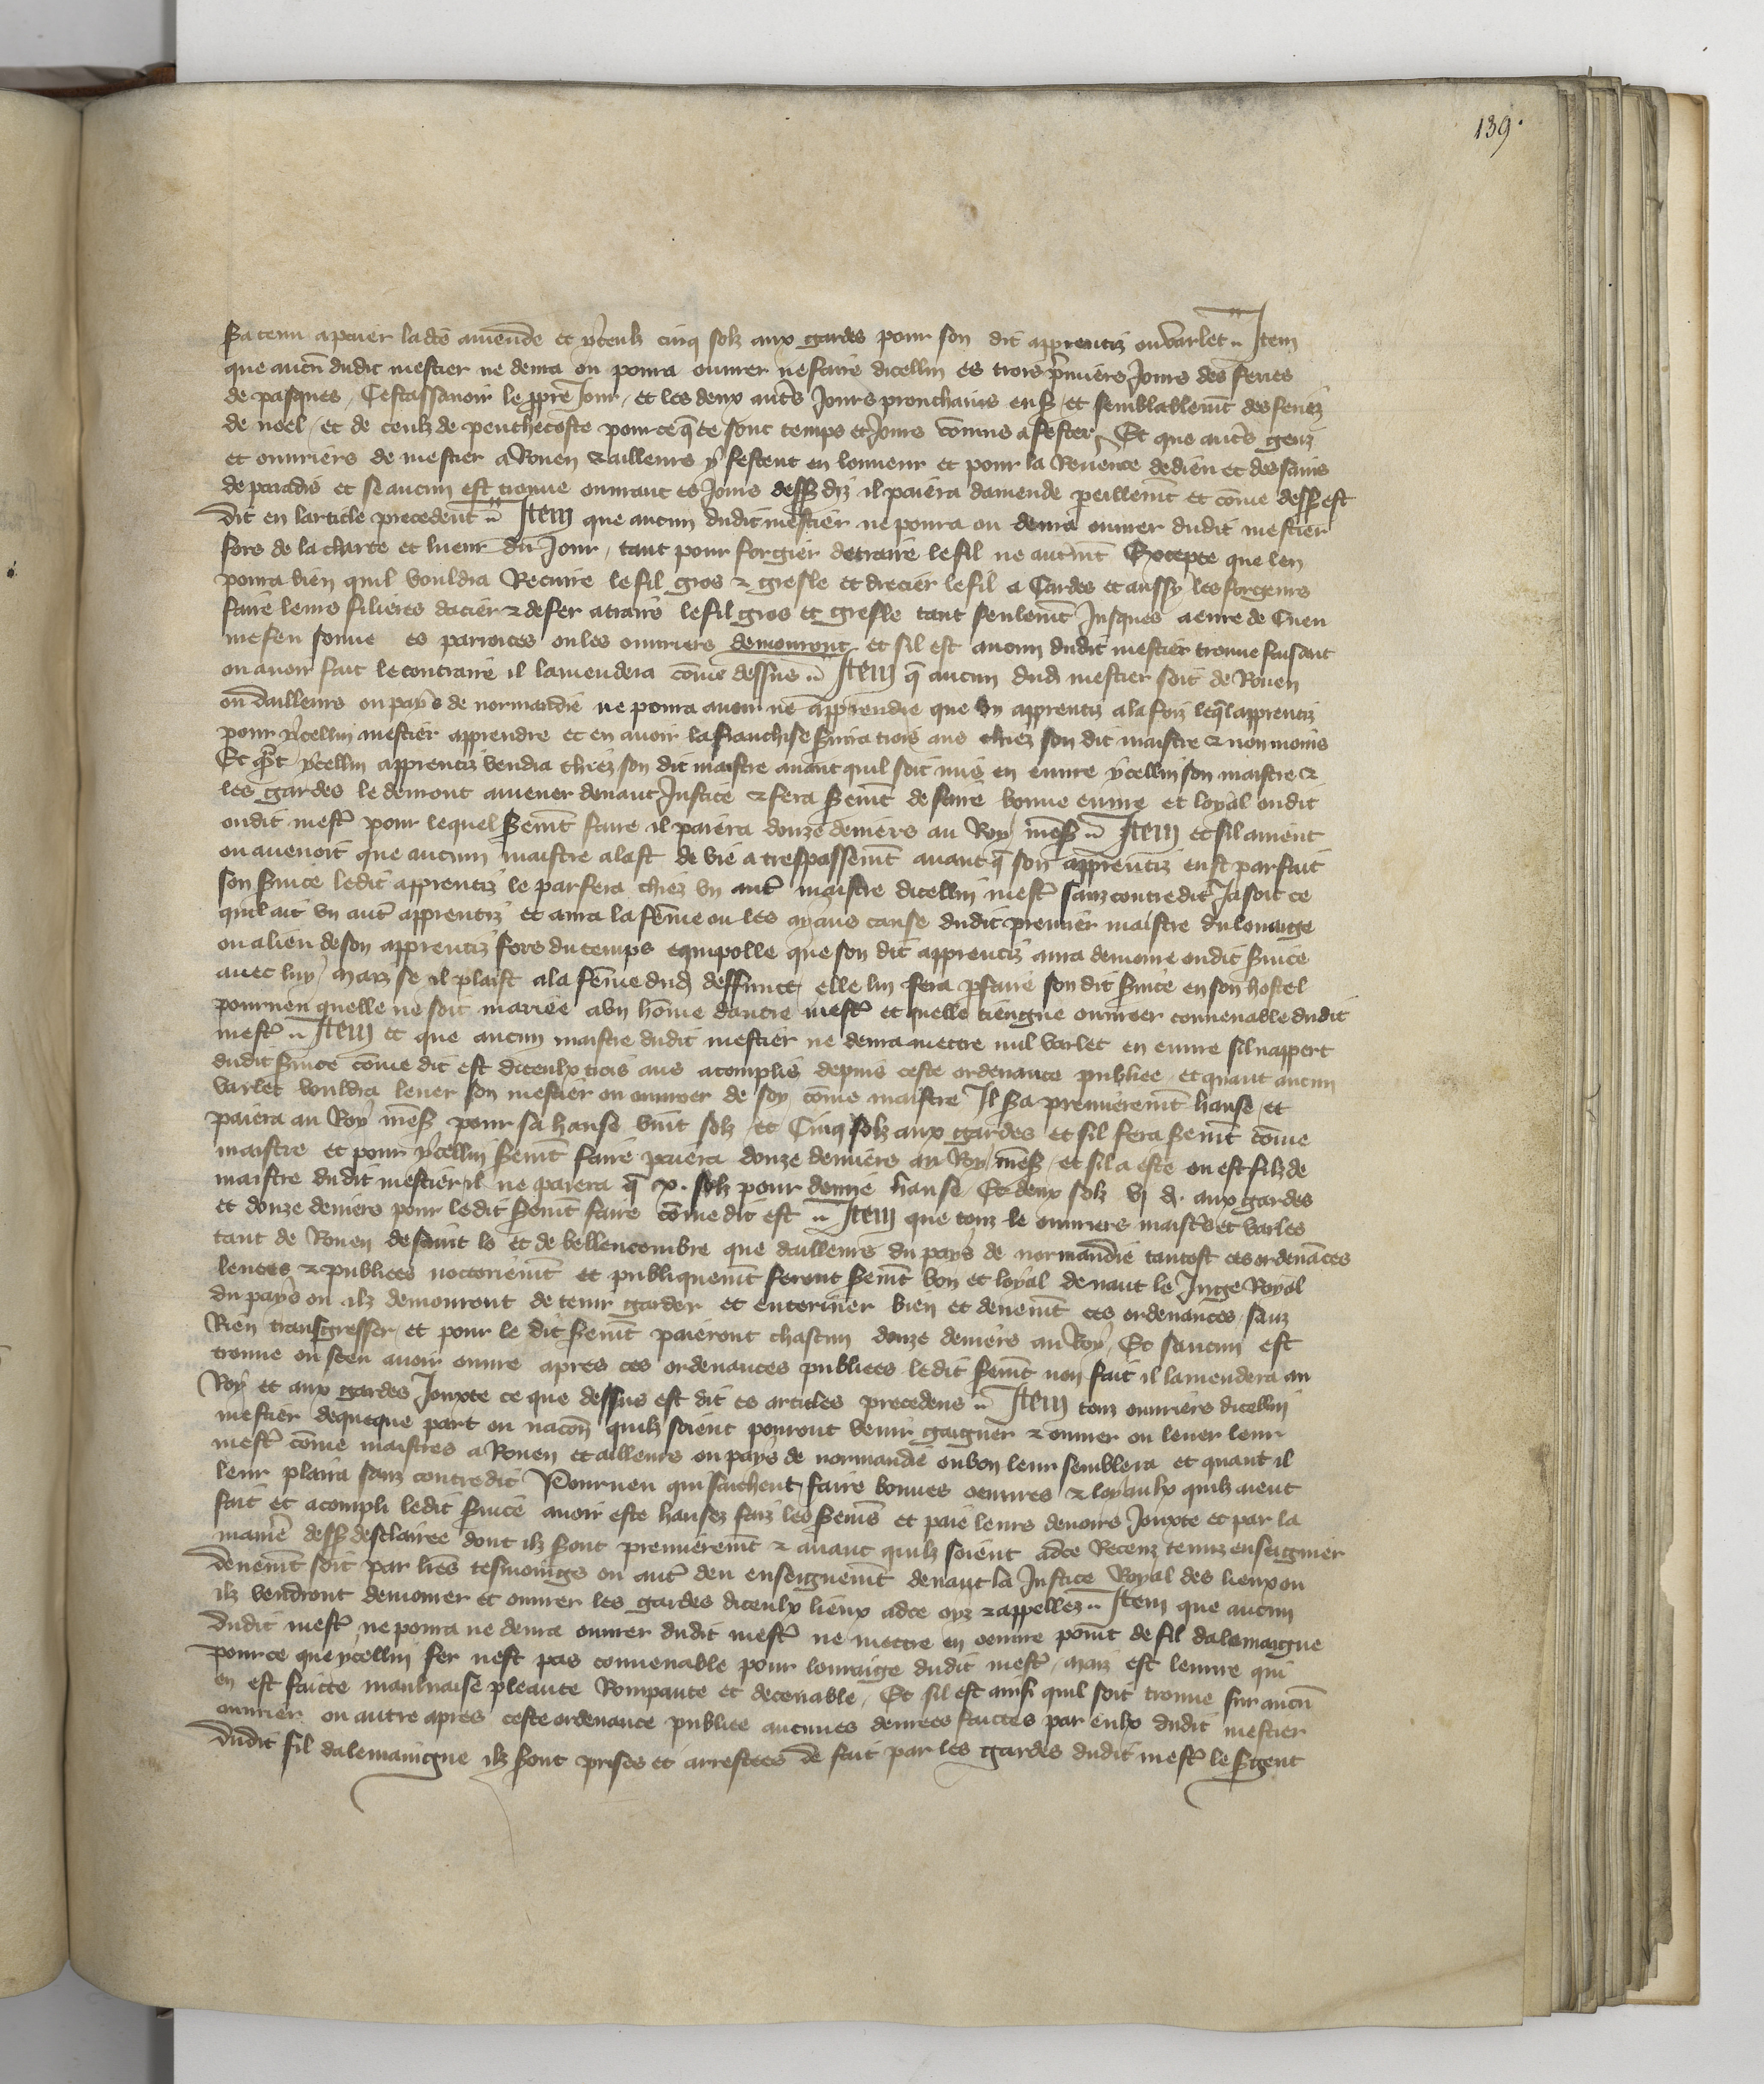 139.
Sera tenu a paier ladicte amende et yceulz cinq solz aux gardes pour son dit apprentiz ou varlet .. Item
que aucun dudit mestier ne devra ou pourra ouvrer ne faire dicellui es trois premiers Jours des feries
de pasques, Cestassavoir le propre Jour, et les deux autres Jours prouchains ensuivans et semblablement des feriez
de noel, et de ceulz de penthecoste pour ce que ce sont temps et Jours communs a fester, Et que autres genz
et ouvriers de mestier a Rouen et ailleurs y festent en lonneur et pour la Reverence de dieu et des sains
de paradis et se aucun est trouve ouvrant es Jours dessus diz il paiera damende pareillement et comme dessus est
dit en larticle precedent .. Item que aucun dudit mestier ne pourra ou devra ouvrer dudit mestier
fors de la clarte et lueur du Jour, tant pour forgier de traire le fil ne autrement Excepte que len
pourra bien quil vouldra Recuire le fil gros et gresle et drecier le fil a Cardes et aussy les forgeurs
faire leurs filieres dacier et de fer a traire le fil gros et gresle tant seulement Jusques a eure de Cuev
mefeu sonne es parroices ou les ouvriers demourront et sil est aucun dudit mestier trouve faisant
ou avoir fait le contraire il lamendera comme dessus .. Item que aucun dudit mestier soit de Rouen
ou dailleurs ou pays de normandie ne pourra avoir ne apprendre que un apprentiz a la foiz lequel apprentiz
pour ycellui mestier apprendre et en avoir la franchise servira trois ans chiez son dit maistre et non moins
Et quant ycellui apprentiz vendra chiez son dit maistre avant quil soit mis en euvre ycellui son maistre et
les gardes le devront amener devant Justice et fera serement de faire bonne euvre et loyal oudit
oudit mestier pour lequel serement faire il paiera douze deniers au Roy nostre sire .. Item et sil avient
ou avenoit que aucun maistre alast de vie a trespassement avant que son apprentiz eust parfait
son service ledit apprentiz le parfera chiez un autre maistre dicellui mestier sanz contredit Ja soit ce
quil ait un autre apprentiz et aura la femme ou les ayans cause dudit premier maistre du louage
ou alien de son apprentiz fors du temps equipolle que son dit apprentiz aura demoure oudit service
avec luy, Maiz se il plaist a la femme dudit deffunct, elle lui fera parfaire son dit service en son hostel
pourveu quelle ne soit mariee a un homme dautre mestier et quelle tiengne ouvroer convenable dudit
mestier .. Item et que aucun maistre dudit mestier ne devra mettre nul varlet en euvre sil nappert
dudit service comme dit est diceulx trois ans acomplis depuis ceste ordenance publiee, et quant aucun
varlet vouldra lever son mestier ou ouvroer de soy comme maistre Il sera premierement hanse, et
paiera au Roy nostre sire pour sa hanse vint solz, et Cinq solz aux gardes et sil fera serement comme
maistre et pour ycellui serement faire paiera douze deniers au Roy nostre sire, et sil a este ou est filz de
maistre dudit mestier il ne paiera que x. solz pour demie hanse Et deux solz vi d. aux gardes
et douze deniers pour ledit serement faire comme dit est .. Item que touz le ouvriers maistres et varles
tant de Rouen de saint lo et de bellencombre que dailleurs du pays de normandie tantost ces ordenances
leuees et publiees nottoirement et publiquement feront serement bon et loyal devant le Juge Royal
du pays ou ilz demourront de tenir garder et enteriner bien et deuement ces ordenances, sanz
Rien transgresser, et pour le dit serement paieront chascun douze deniers au Roy, Et saucun est
trouve ou sceu avoir ouvre apres ces ordenances publiees ledit serement non fait il lamendera au
Roy et aux gardes Jouxte ce que dessus est dit es articles precedens .. Item touz ouvriers dicellui
mestier dequeque part ou nacion quilz soient pourront venir gaigner et ouvrer ou lever leur
mestier comme maistres a Rouen et ailleurs ou pays de normandie ou bon leur semblera et quant il
leur plaira sanz contredit Pourveu qui saichent, faire bonnes oeuvres et loyaulx quilz aient
fait et acompli ledit service avoir este hansez faiz les seremens et paie leurs devoirs Jouxte et par la
maniere dessus desclairee dont ilz seront premierement et avant quilz soient adce Receuz tenuz enseignier
deuement soit par lettres tesmoings ou autre deu enseignement devant la Justice Royal des lieux ou
ilz vendront demourer et ouvrer les gardes diceulx lieux adce oyz et appellez .. Item que aucun
dudit mestier ne pourra ne devra ouvrer dudit mestier ne mettre en oeuvre point de fil dalemaigne
pource que ycellui fer nest pas convenable pour louvraige dudit mestier, Maiz est leuvre qui
en est faicte mauvaise pleante Rompante et decevable, Et sil est ainsi quil soit trouve sur aucun
ouvrier ou autre apres ceste ordenance publiee aucunes denrees faictes par eulx dudit mestier
dudit fil dalemaingne ilz seront prises et arrestees de fait par les gardes dudit mestier le sergent